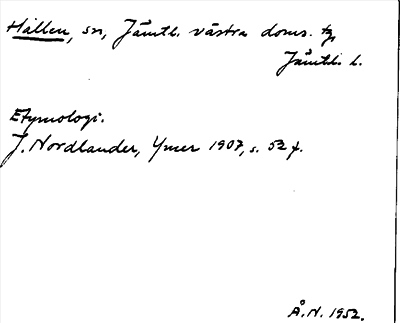 Hallen, sn, Jämtl. västra doms. tg,
Jämtl. l.
Etymologi.
J. Nordlander, Ymer 1907, s. 52 f.
Å.N. 1952.